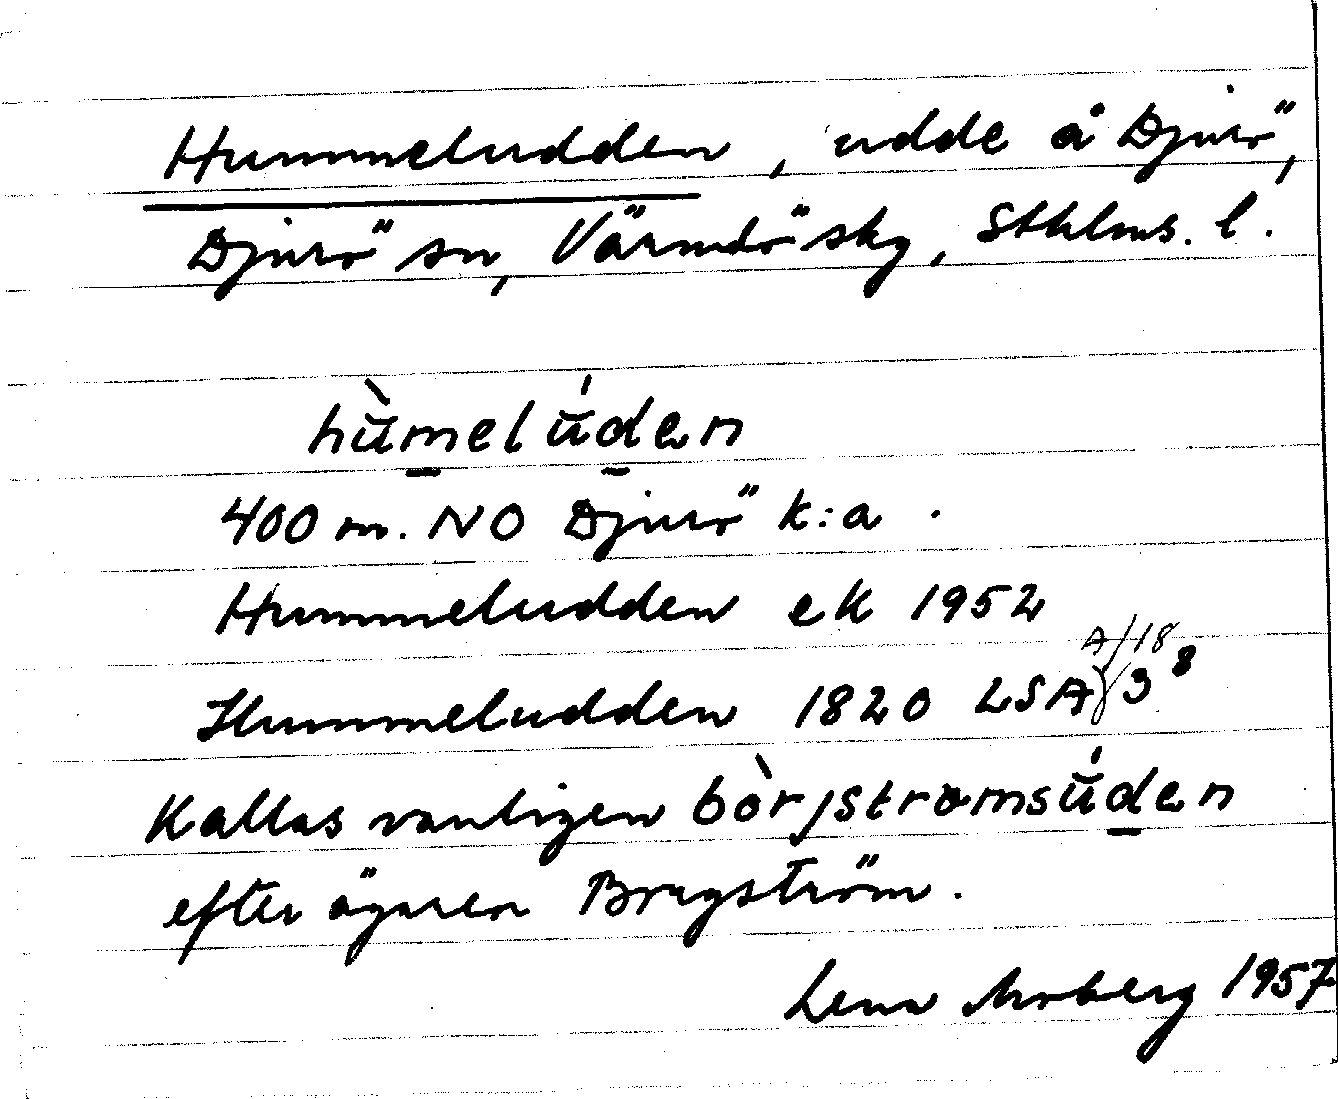 Hummeludden, udde å Djurö,
Djurö sn, Värmdö sky, Sthlms. l.
hùmelúden
400 m. NO Djurö k:a.
Hummeludden ek 1952
A/18
Hummeludden 1820 LSA 3⁸
Kallas vanligen bòrjstromsúden
efter ägaren Bregström.
Lena Moberg 1957